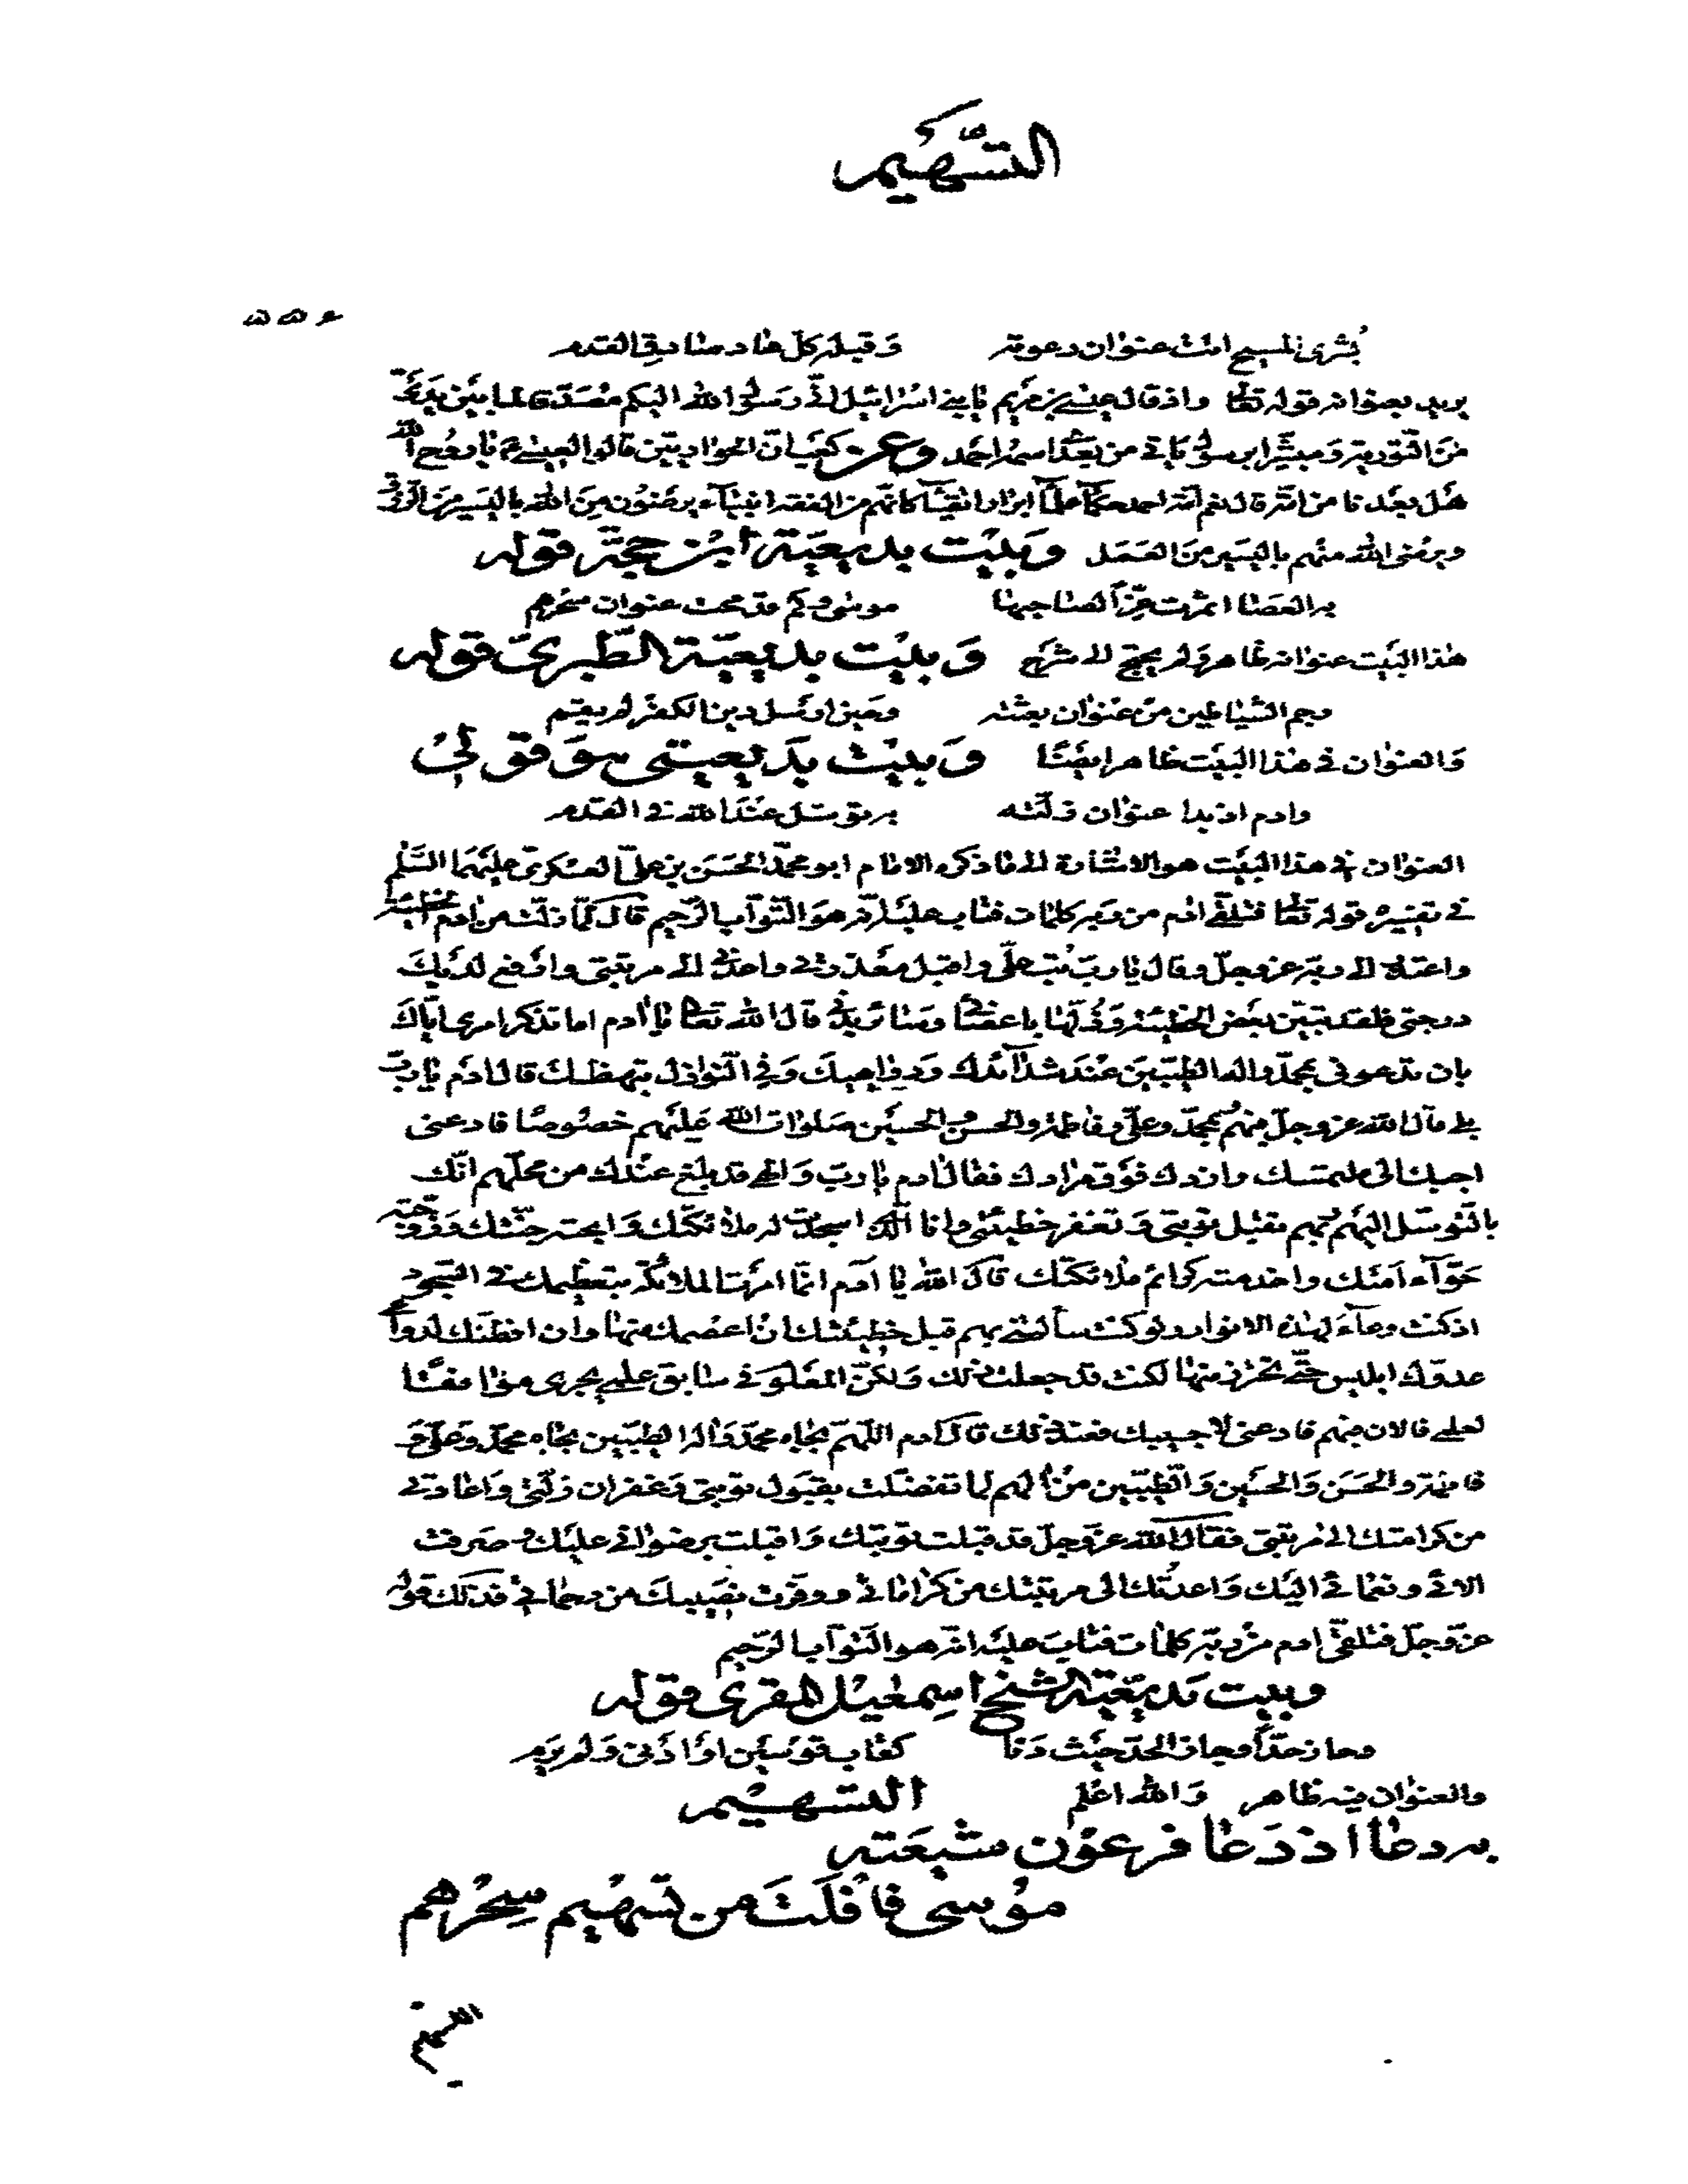 التسهيم
بُشرى المسيح اتت عنوان دعوته وَقبله كلّ هاد صادق القدم
يريد بعنوانه قوله تعالى واذ قال عيسى بن مريم يا بني اسرائيل انّي رسول الله اليكم مصدّقا لما بين يديّ
من التّورية ومبشّرا برسول ياتي من بعدى اسمه احمد وعن كعب انّ الحواريّين قالوا لعيسى ع يا روح الله
هل بعدنا من امّة قال نعم امّة احمد حكماء علماء ابرار اتقياء كانّهم من الفقه انبياء يرضون من الله باليسير من الرّزق
ويرضى الله منهم باليسير من العمل وبَيْت بديعيّة ابن حجّة قوله
به العصا اثمرت عزّا لصاحبها موسى وكم قد محت عنوان سحرهم
هذا البيت عنوانه ظاهر ولم يحتج الى شرح وبيْت بديعيّة الطّبري قوله
رجم الشياطين من عنوان بعثته وحين ارسل دين الكفر لم يقم
والعنوان في هذا البيت ظاهر ايضًا وبيت بديعيتى هو قولي
وادم اذ بدا عنوان زلّته به توسّل عند الله في القدم
العنوان في هذا البيت هو الاشارة الى ما ذكره الامام ابو محمّد الحسن بن علىّ العسكرىّ عليهما السّلم
في تفسير قوله تعالى فتلقّى ادم من ربه كلمات فتاب عليه انّه هو التّوّاب الرّحيم قال لمّا زلّت من ادم الخطيئة
واعتذر الى ربّه عزوجلّ وقال يا ربّ تُب علىّ واقبل معذرتي واعدني الى مرتبتى وارفع لديك
درجتى فلقد تبيّن بعض الخطيئة وذلّها باعضائي وسائر بدني قال الله تعالى يا ادم اما تذكر امرى ايّاك
بان تدعونى بمحمّد واله الطيّبين عند شدائدك ودواهيك وفي النّوازل تبهظك قال ادم يا ربّ
بلى قال الله عزوجلّ فبهم بمحمّد وعلىّ وفاطمة والحسن والحسين صلوات الله عليهم خصوصًا فادعنى
اجبك الى ملتمسك وازدك فوق مرادك فقال ادم يا ربّ والهى قد بلغ عندك من محلّهم انّك
بالتّوسّل اليهم بهم تقبل توبتى وتغفر خطيئتى وانا الّذى اسجدت له ملائكتك وابحته جنّتك وزوّجته
حوّآء امتك واخدمته كرائم ملائكتك قال الله يا آدم انّما امرت الملائكة بتعظيمك في السّجود
اذ كنت وعآء لهذه الانوار ولو كنت سألتنى بهم قبل خطيئتك ان اعصمك منها وان افطنك لدواعي
عدوّك ابليس حتّى تحترز منها لكنت قد جعلت ذلك ولكنّ المعلوم في سابق علمى يجرى موافقًا
لعلمى فالان فبهم فادعنى لاجيبك فعند ذلك قال ادم اللّهمّ بجاه محمّد واله الطيّبين بجاه محمّد وعلىّ و
فاطمة والحسن والحسين والطّيّبين من الهم لما تفضّلت بقبول توبتى وغفران زلّتى واعادتى
من كراماتك الى مرتبتى فقال الله عزّوجلّ قد قبلت توبتك واقبلت برضوانى عليك وصرفت
الائي ونعمائي اليك واعدتك الى مرتبتك من كراماتى ووفّرت نصيبك من رحماتى فذلك قوله
عزّوجلّ فتلقّى ادم من ربّه كلمات فتاب عليه انّه هو التّوّاب الرّحيم
وبيت بديعيّة الشيخ اسمعيل المقرى قوله
وحاز حدّا وجاز الحدّ حيث دنا كقاب قوسين او ادنى ولم يرم
والعنوان فيه ظاهر والله اعلم التسهيم
به دعا اذ دعا فرعون شيعته
موسى فافلت من تسهيم سحرهم
التسهيم